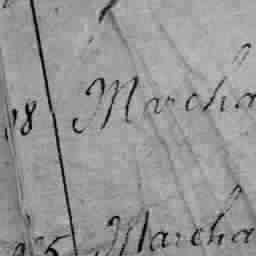 18 Marcha
25 Marcha